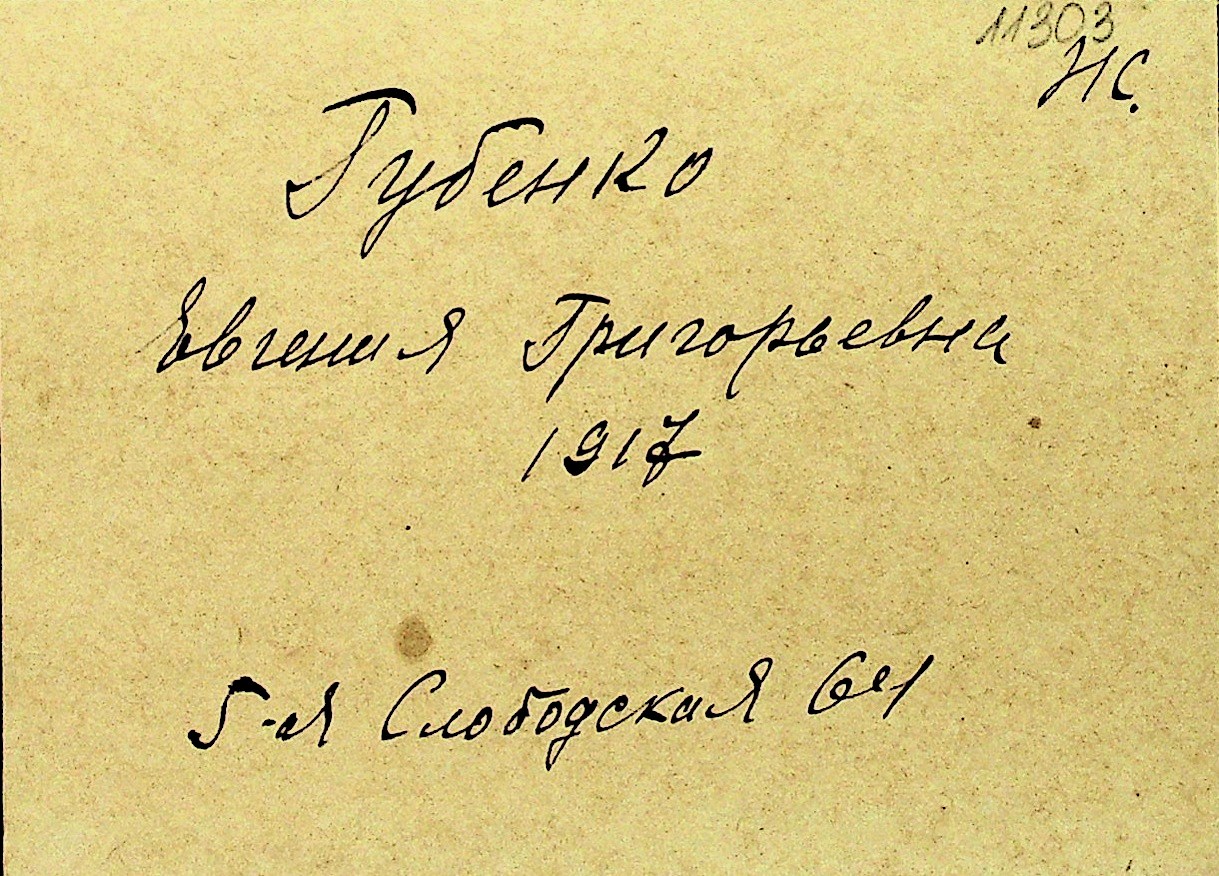 11303
Нс.
Губенко
Евгения Григорьевна
1917
5-ая Слободская